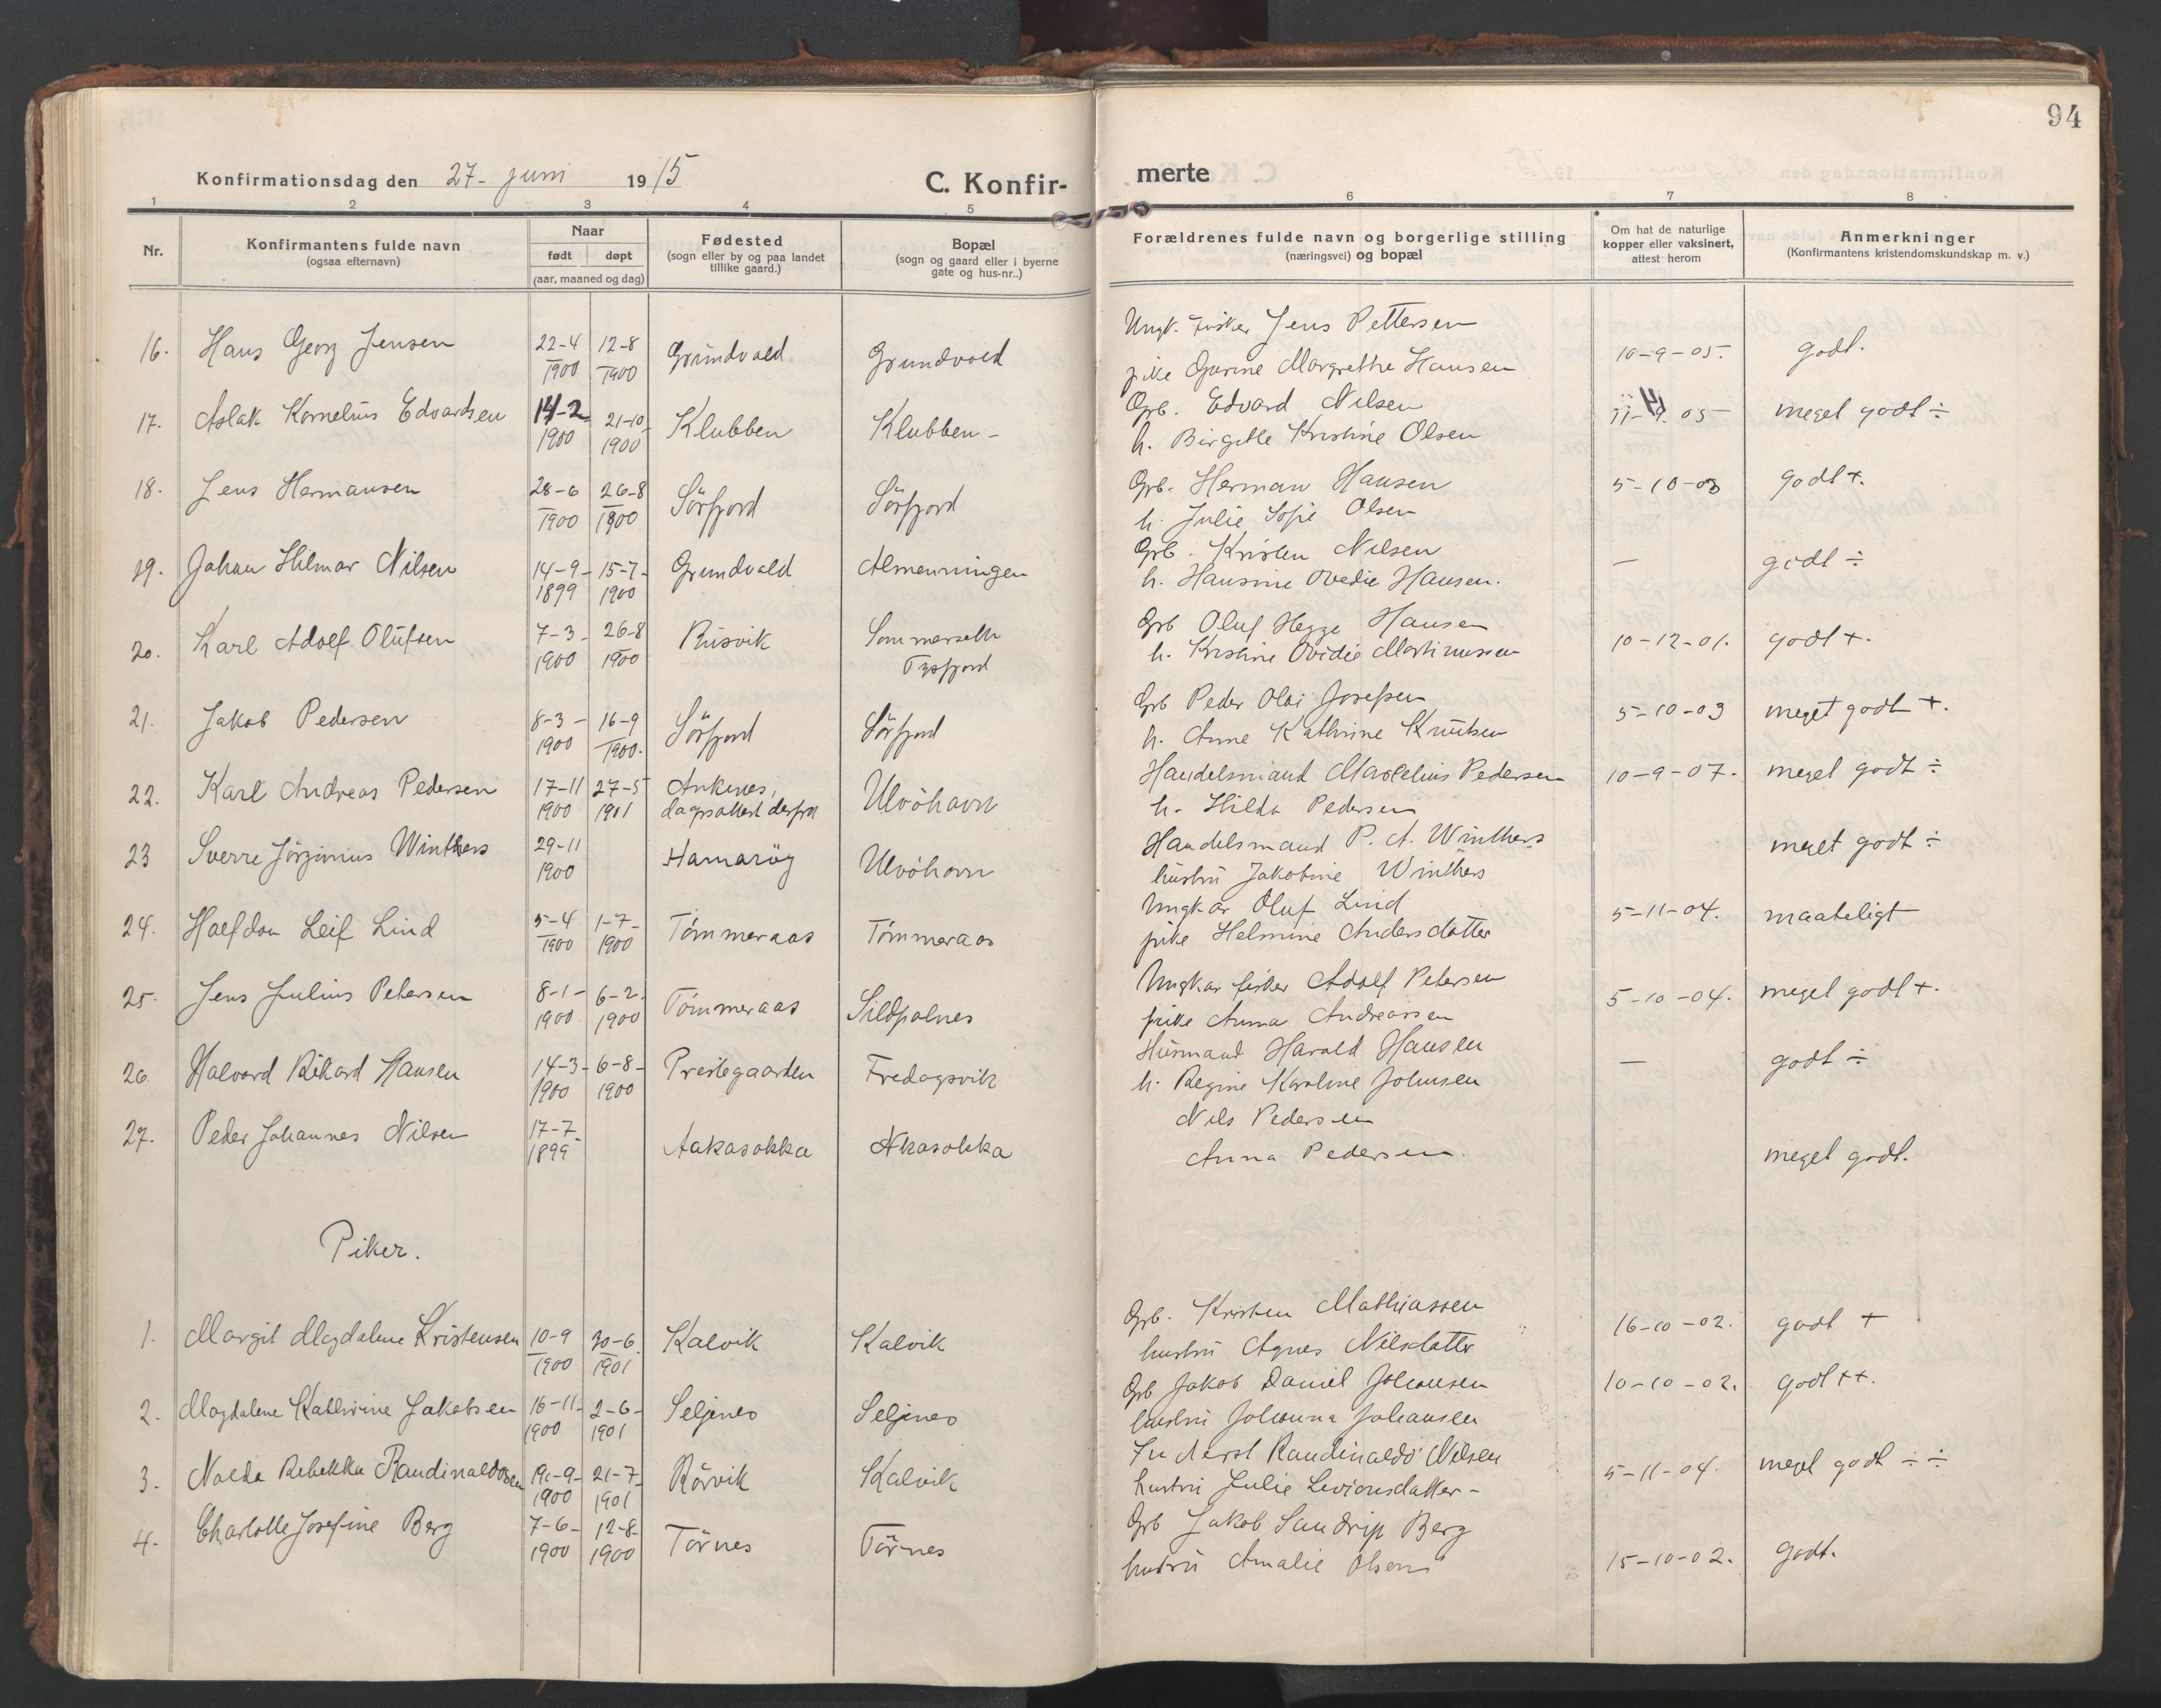 94
Konfirmationsdag den 27- juni 1915
C. Konfir-
merte
1 2 3 4 5 6 7 8
Nr.
Konfirmantens fulde navn
(ogsaa efternavn)
Naar
født døpt
(aar, maaned og dag)
Fødested
(sogn eller by og paa landet
tillike gaard.)
Bopæl
(sogn og gaard eller i byerne
gate og hus-nr..)
Forældrenes fulde navn og borgerlige stilling
(næringsvei) og bopæl
Om hat de naturlige
kopper eller vaksinert,
attest herom
Anmerkninger
(Konfirmantens kristendomskundskap m. v.)
16. Hans Georg Jensen 22-4 1900 12-8 1900 Grundvald Grundvold
Ungk. Fisker Jens Pettersen
pike Gurine Margrethe Hansen 10-9-05. godt.
17. Aslak Kornelius Edvardsen 14-2 1900 21-10 1900 Klubben Klubben-
Grb. Edvard Nilsen
h. Birgitte Kristine Olsen 05- meget godt ÷
18. Jens Hermansen 28-6 1900 26-8 1900 Sörfjord Sörfjord
Grb. Herman Hansen
h. Julie Sofie Olsen 5-10-03 godt +.
19. Johan Hilmar Nilsen 14-9- 1899 15-7- 1900 Grundvald Almenningen
Grb. Kristen Nilsen
h. Hansine Ovedie Hansen. — godt ÷
20. Karl Adolf Olufsen 7-3- 1900 26-8 1900 Rusvik Sommerseth
Tysfjord
Grb Oluf Hegge Hansen
h. Kristine Ovidie Martinussen 10-12-01. godt +.
21. Jakob Pedersen 8-3- 1900 16-9 1900. Sörfjord Sörfjord
Grb Peder Olai Josefsen
h. Anne Kathrine Knutsen 5-10-03 meget godt +.
22. Karl Andreas Pedersen 17-11 1900 27-5 1901 Ankenes,
daapsattest derfra Ulvöhavn
Handelsmand Marselius Pedersen
h. Hilda Pedersen 10-9-07. meget godt ÷
23 Sverre Jörginius Winthers 29-11 1900 Hamaröy Ulvöhavn
Handelsmand P. A. Winthers
hustru Jakobine Winthers meget godt ÷
24. Halfdan Leif Lind 5-4 1900 1-7- 1900 Tömmeraas Tömmeraas
Ungkar Oluf Lind
pike Helmine Andersdatter 5-11-04. maateligt
25. Jens Julius Petersen 8-1- 1900 6-2. 1900 Tömmeraas Sildpolnes
Ungkar fisker Adolf Petersen
pike Anna Andreassen 5-10-04. meget godt +.
26. Halvard Rikard Hansen 14-3- 1900 6-8- 1900 Prestegaarden Fredagsvik
Husmand Harald Hansen
h. Regine Karoline Johnsen — godt ÷
27. Peder Johannes Nilsen 17-7- 1899 Aakasokka Akasokka
Nils Pedersen
Anna Pedersen. meget godt.
Piker.
1. Margit Magdalene Kristensen 10-9 1900 30-6. 1901 Kalvik Kalvik
Grb. Kristen Mathiassen
hustru Agnes Nilsdatter 16-10-02. godt +
2. Magdalene Kathrine Jakobsen 16-11- 1900 2-6- 1901 Seljenes Seljenes
Grb Jakob Daniel Johansen
hustru Johanna Johansen 10-10-02. godt ++.
3. Nalda Rebekka Raudinaldsen 19-9- 1900 21-7- 1901 Rörvik Kalvik
Inderst Raudinaldi Nilsen
hustru Julie Levionsdatter- 5-11-04. meget godt ÷ ÷
4. Charlotte Josefine Berg 7-6- 1900 12-8- 1900 Törnes Törnes
Grb Jakob Sandrip Berg
hustru Amalie Olsen 15-10-02. godt.